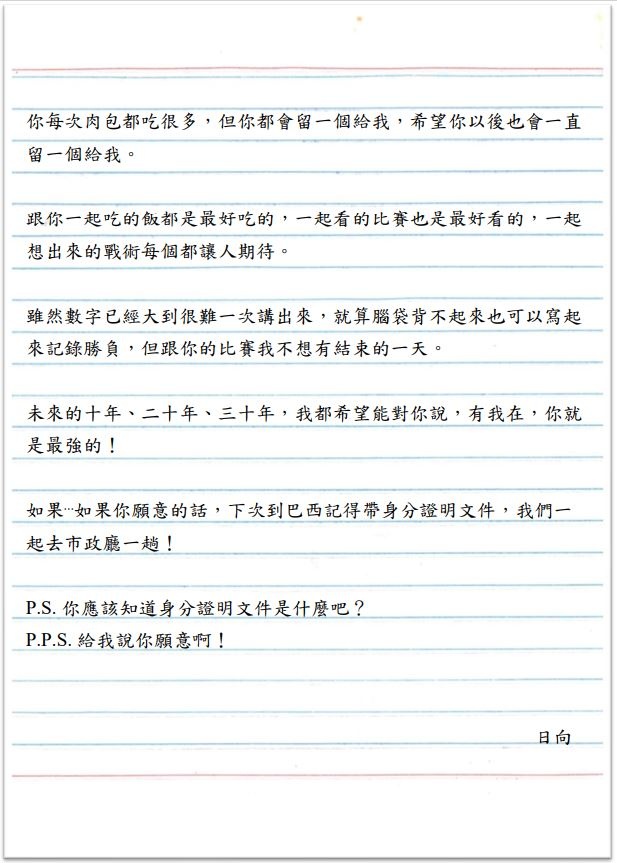 你每次肉包都吃很多，但你都會留一個給我，希望你以後也會一直
留一個給我。
跟你一起吃的飯都是最好吃的，一起看的比賽也是最好看的，一起
想出來的戰術每個都讓人期待。
雖然數字已經大到很難一次講出來，就算腦袋背不起來也可以寫起
來記錄勝負，但跟你的比賽我不想有結束的一天。
未來的十年、二十年、三十年，我都希望能對你說，有我在，你就
是最強的！
如果…如果你願意的話，下次到巴西記得帶身分證明文件，我們一
起去市政廳一趟！
P.S. 你應該知道身分證明文件是什麼吧？
P.P.S. 給我說你願意啊！
日向